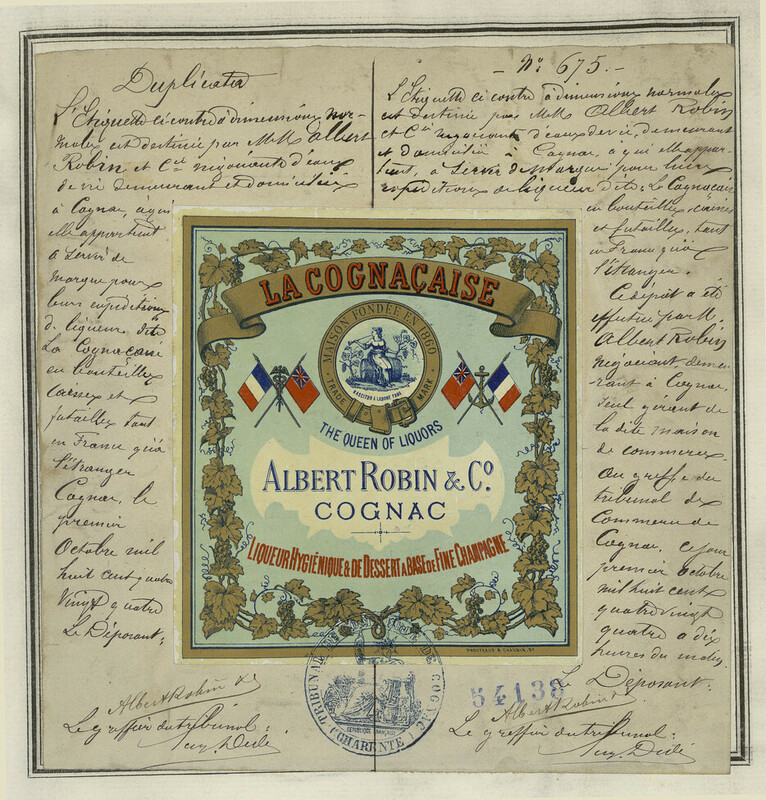 Duplicata
L'Etiquette ci contre à dimensions nor-
males est destinée par MM Albert
Robin et Cie négociants d'eaux
de vie demeurant et domiciliés
à Cognac, à qui
elle appartient
à servir de
marque pour
leurs expéditions
de liqueur dite
La Cognaçaise
en bouteilles
caisses et
futailles tant
en France qu'à
l'étranger
Cognac, le
premier
Octobre mil
huit cent quatre
vingt quatre
Le Déposant:
Albert Robin &
Le greffier du tribunal:
- No 675. -
L'Etiquette ci contre à dimensions normales
est destinée par MM Albert Robin
et Cie négociants d'eaux de vie, demeurant
et domiciliés à Cognac, à qui elle appar-
tient, à servir de marque pour leurs
expéditions de liqueur dite: La Cognaçaise
en bouteilles, caisses
et futailles, tant
en France qu'à
l'étranger.
Ce dépôt a été
effectué par M.
Albert Robin
négociant demeu-
rant à Cognac,
seul gérant de
la dite maison
de commerce.
Au greffe du
tribunal de
Commerce de
Cognac, ce jour
premier Octobre
mil huit cent
quatre vingt
quatre à dix
heures du matin.
Le Déposant:
Albert Robin &
Le greffier du tribunal:
LA COGNAÇAISE
MAISON FONDÉE EN 1860
TRADE MARK
THE QUEEN OF LIQUORS
ALBERT ROBIN & Co.
COGNAC
LIQUEUR HYGIÉNIQUE & DE DESSERT A BASE DE FINE CHAMPAGNE
TRIBUNAL DE COGNAC
RÉPUBLIQUE FRANÇAISE
(CHARENTE)
54138